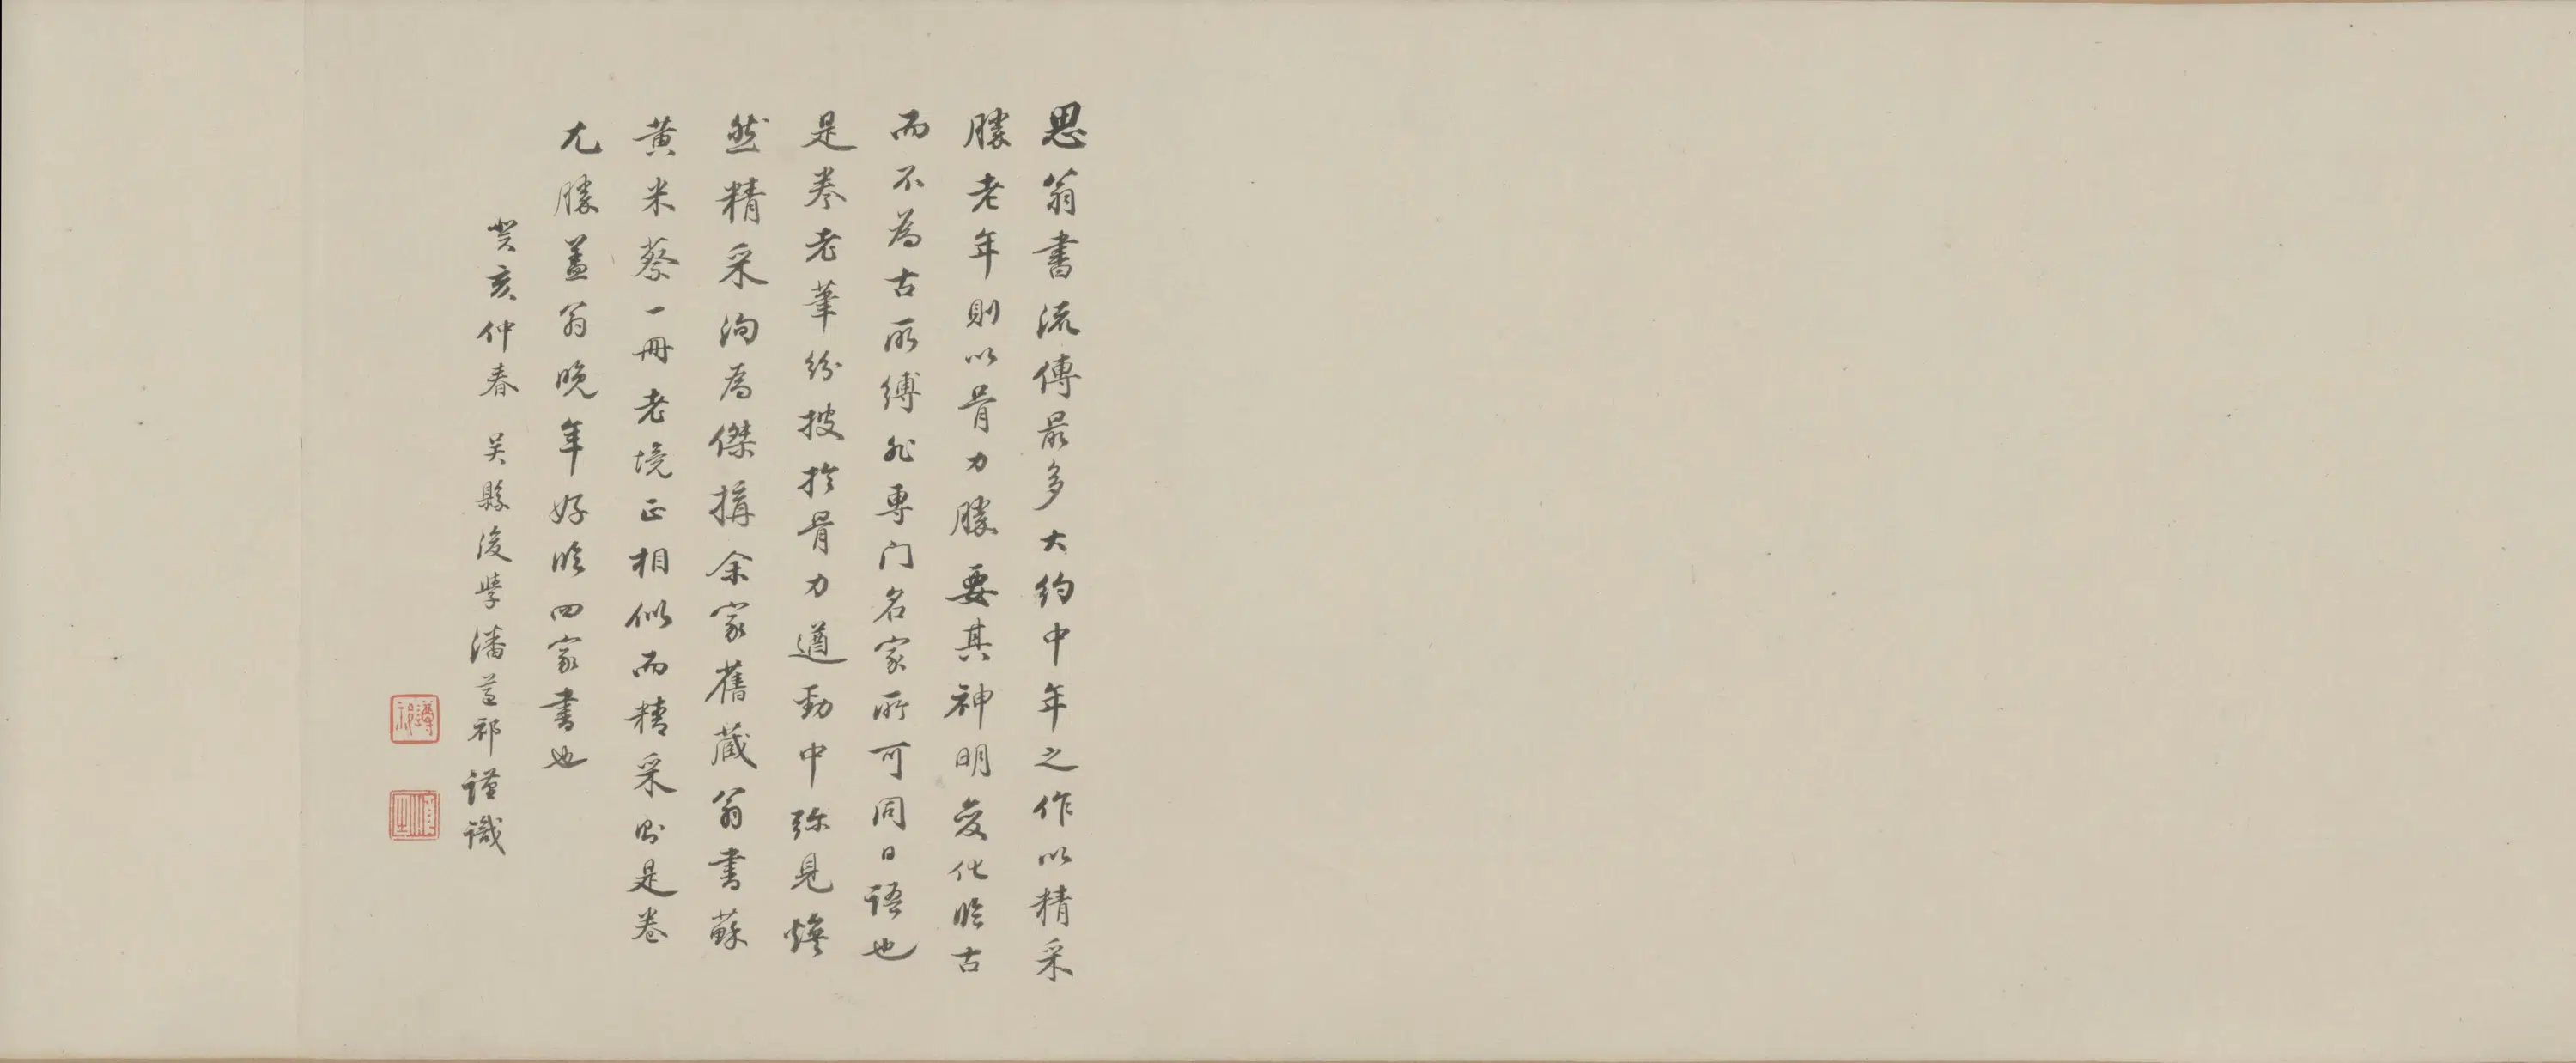 思翁書流傳最多大約中年之作以精采
勝老年則以骨力勝要其神明變化臨古
而不為古所縛非專門名家所可同日語也
是卷老筆紛披於骨力遒勁中弥見煥
然精采洵為傑搆余家舊藏翁書蘇
黃米蔡一冊老境正相似而精采則是卷
尤勝蓋翁晚年好臨四家書也
癸亥仲春 吴縣後學潘遵祁謹識
遵祁
順之